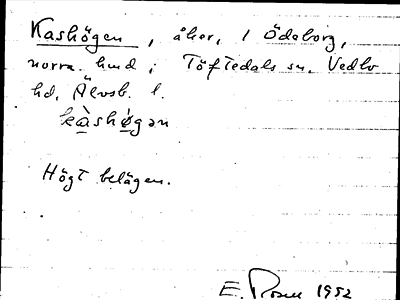 Kashögen, åker, / Ödeborg,
norra hmd; Töftedals sn. Vedbo
hd, Älvsb. l.
kàshø̀gən
Högt belägen.
E. Rosen 1952